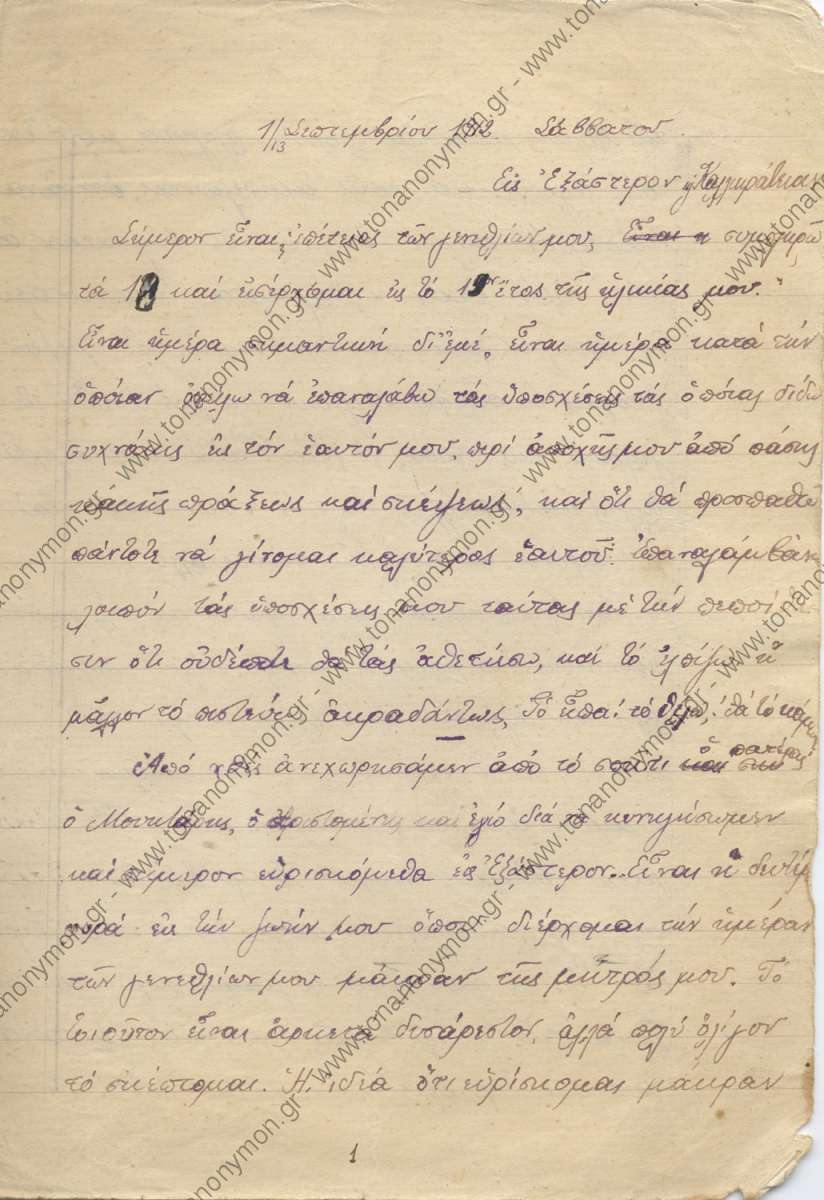 1/13 Σεπτεμβρίου 1912 Σάββατον.
Εἰς Ἑξάστερον
Σήμερον εἶναι ἡ ἐπέτειος τῶν γενεθλίων μου, εἶναι η συμπληρῶ
τά 18 καί εἰσέρχομαι εἰς τό 19ον ἔτος τῆς ἡλικίας μου.
Εἶναι ἡμέρα σημαντική δι' ἐμέ, εἶναι ἡμέρα κατά τήν
ὁποίαν ὀφείλω νά ἐπαναλάβω τάς ὑποσχέσεις τάς ὁποίας δίδω
συχνάκις εἰς τόν ἑαυτόν μου, περί ἀποχῆς μου ἀπό πάσης
κακῆς πράξεως καί σκέψεως, και ὅτι θά προσπαθῶ
πάντοτε νά γίνομαι καλύτερος ἑαυτοῦ. Ἐπαναλαμβάνω
λοιπόν τάς ὑποσχέσεις μου ταύτας μέ τήν πεποίθη
σιν ὅτι οὐδέποτε θα τάς ἀθετήσω, καί τό ἐλπίζω ἤ
μᾶλλον τό πιστεύω ἀκραδάντως, Τό εἶπα! τό θέλω! θά τό κάμω
Ἀπό χθές ἀνεχωρήσαμεν ἀπό τό σπίτι ὁ πατέρας
ὁ Μουκτάρης, ὁ Ἀριστομένης και ἐγώ διά να κυνηγήσωμεν
καί σήμερον εὑρισκόμεθα εἰς Ἑξάστερον. Εἶναι ἡ δευτέρα
φορά εἰς τήν ζωήν μου ὅπου διέρχομαι τήν ἡμέραν
τῶν γενεθλίων μου μακράν τῆς μητρός μου. Τό
τοιοῦτον εἶναι ἀρκετά δυσάρεστον, ἀλλά πολύ ὀλίγον
τό σκέπτομαι. Ἡ ἰδέα ὅτι εὑρίσκομαι μακράν
1
www.tonanonymon.gr - www.tonanonymon.gr - www.tonanonymon.gr